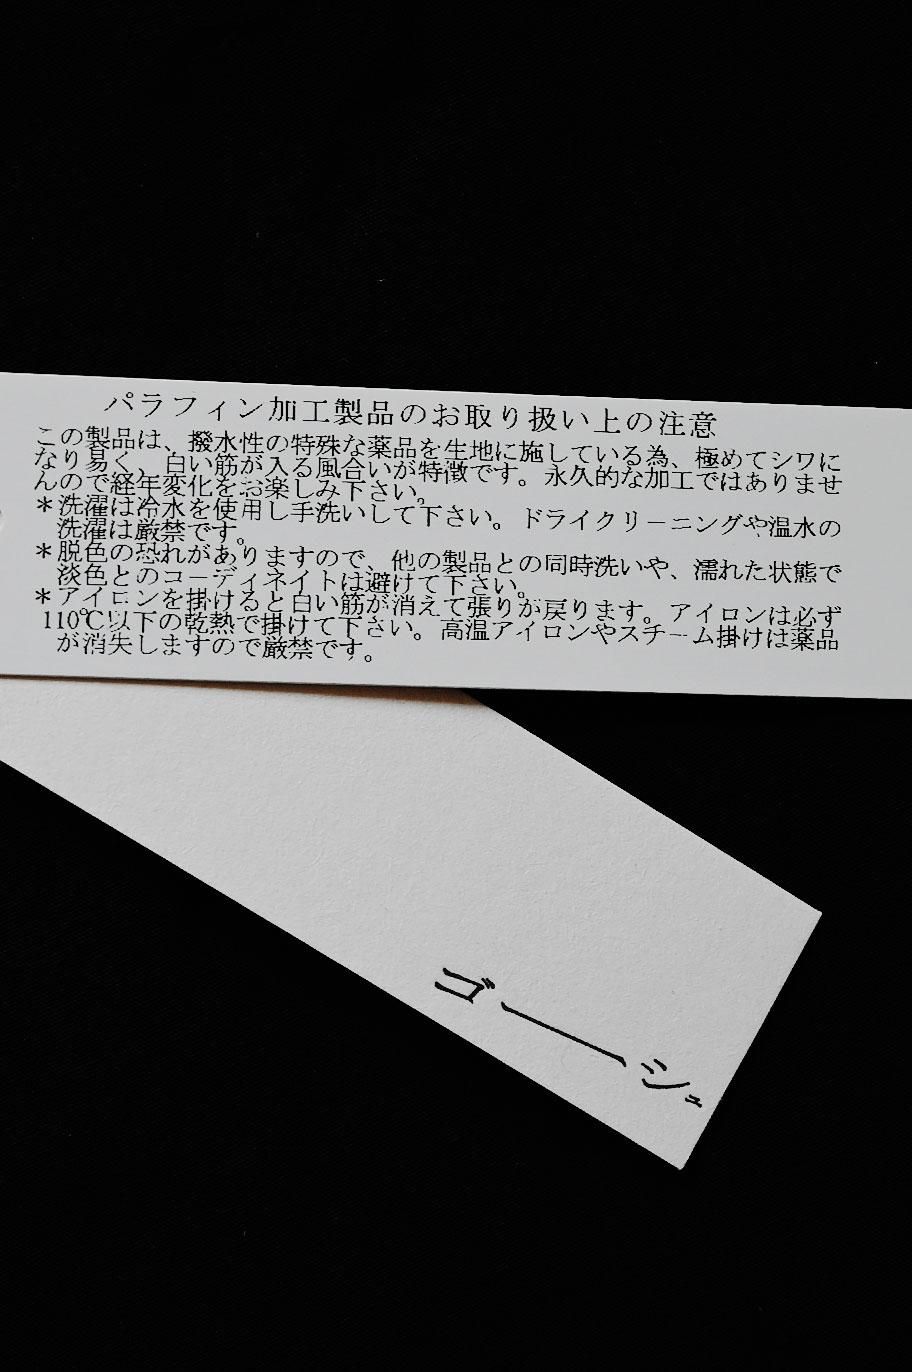 パラフィン加工製品のお取り扱い上の注意
この製品は、撥水性の特殊な薬品を生地に施している為、極めてシワに
なり易く、白い筋が入る風合いが特徴です。永久的な加工ではありませ
んので経年変化をお楽しみ下さい。
＊洗濯は冷水を使用し手洗いして下さい。ドライクリーニングや温水の
洗濯は厳禁です。
＊脱色の恐れがありますので、他の製品との同時洗いや、濡れた状態で
淡色とのコーディネイトは避けて下さい。
＊アイロンを掛けると白い筋が消えて張りが戻ります。アイロンは必ず
110℃以下の乾熱で掛けて下さい。高温アイロンやスチーム掛けは薬品
が消失しますので厳禁です。
ゴーシュ